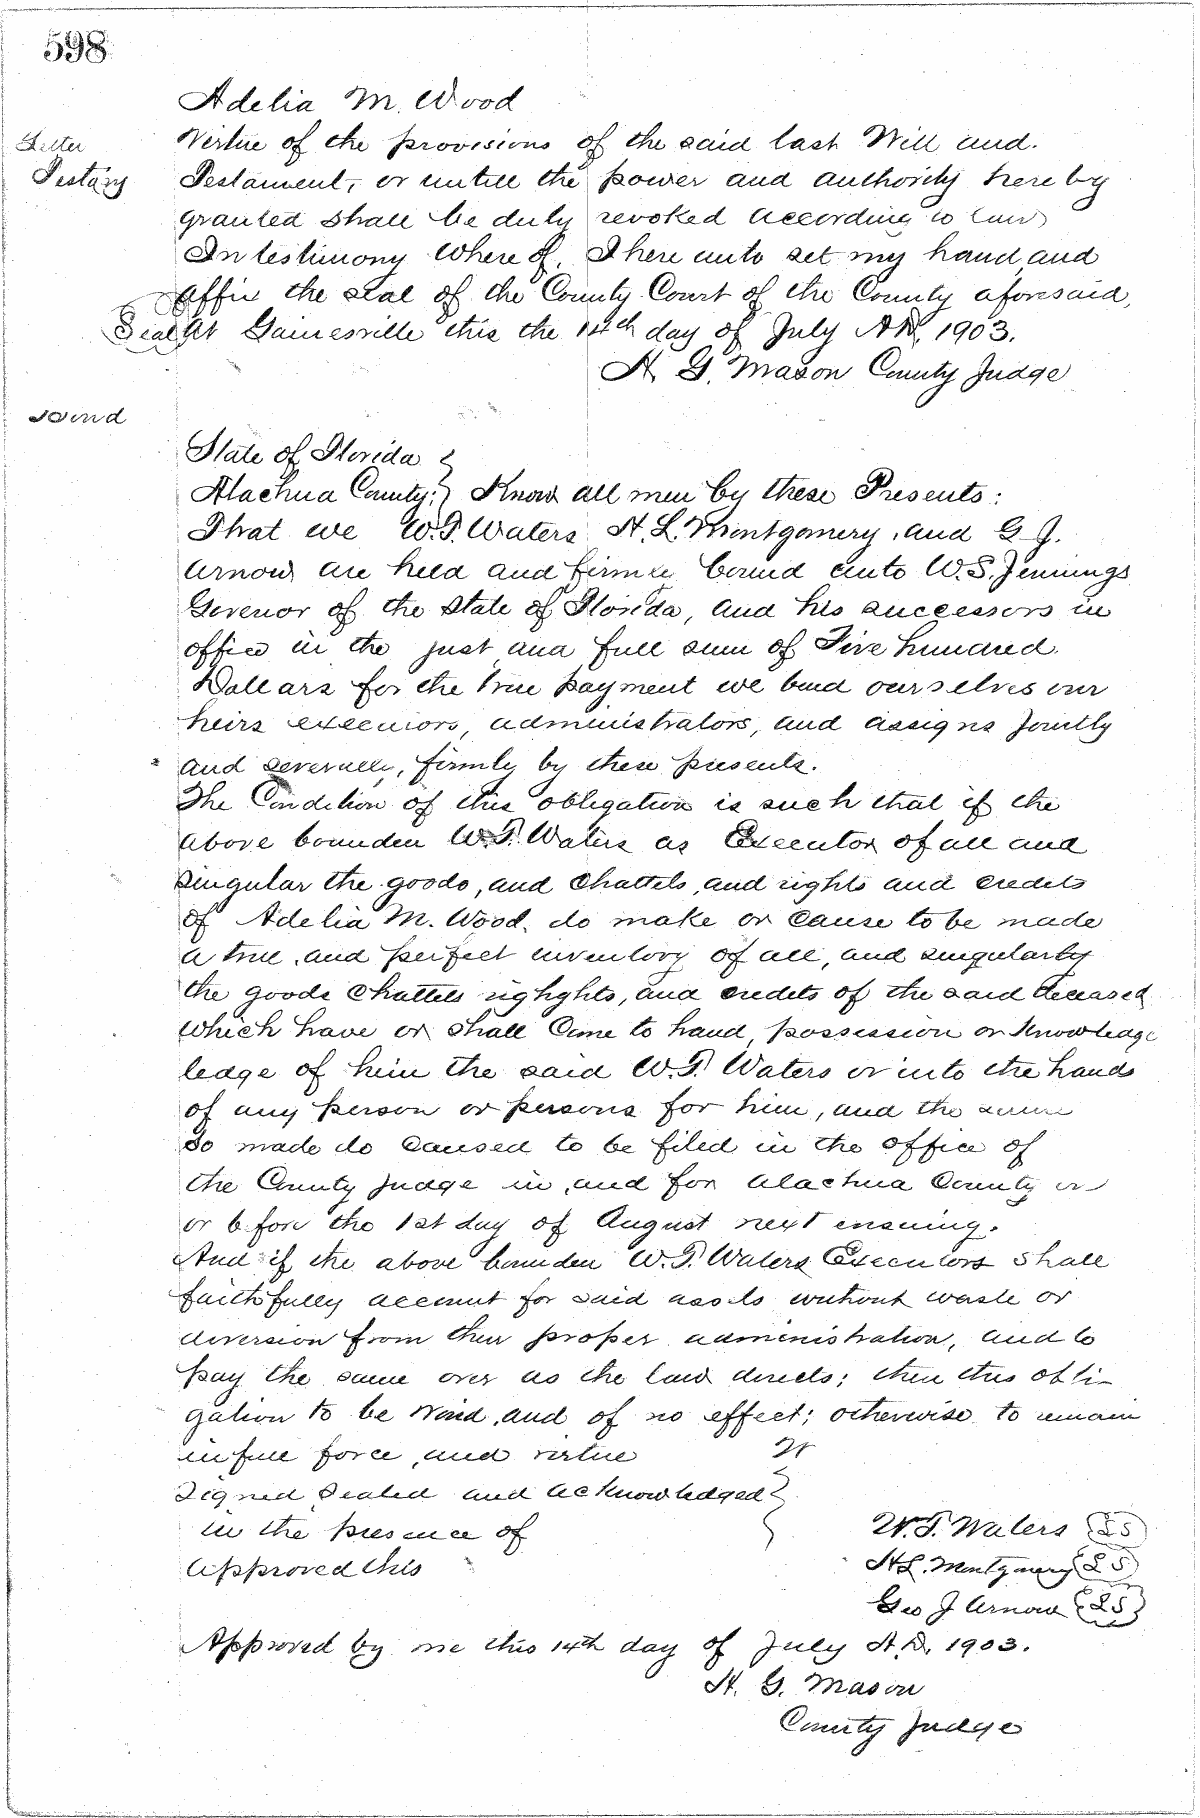 598
Adelia M. Wood
Letter
Testary
Virtue of the provisions of the said last Will and.
Testament, or untill the power and authority hereby
granted shall be duly revoked according to law
In testimony where of, I here unto set my hand and
affix the seal of the County Court of the County aforesaid,
Seal At Gainesville this the 14th day of July A.D, 1903.
H. G. Mason County Judge
State of Florida
Alachua County: Know all men by these Presents:
That we W.T. Waters H. L. Montgomery, and G J.
Arnow are held and firmly bound unto W.S. Jennings
Govenor of the State of Florida, and his successors in
office in the just and full sum of Five hundred.
Dollars for the true payment we bind ourselves our
heirs executors, administrators, and assigns jointly
and severally, firmly by these presents.
The Condition of this obligation is such that if the
above bounden W.T. Waters as Executor of all and
singular the goods, and Chattels, and rights and credits
of Adelia M. Wood, do make or cause to be made
a true, and perfect inventory of all, and singularly
the goods Chattels righghts, and credets of the said deceased
which have or shall Come to hand, possession or Knowledge
ledge of him the said W.T. Waters or into the hands
of any person or persons for him, and the same
so made do caused to be filed in the office of
the County Judge in, and for Alachua County on
or before the 1st day of August next ensuing.
And if the above bounden W.T. Waters Executors shall
faithfully account for said assets without waste or
diversion from their proper administration, and to
pay the same over as the law directs; then this obli-
gation to be Void, and of no effect; otherwise to remain
in full force, and virtue
Signed Sealed and acknowledged
in the presence of
W.T. Waters (LS)
Approved this
H L. Montgomery (LS)
Geo J Arnow (LS)
Approved by me this 14th day of July A.D, 1903.
H. G. Mason
County Judge